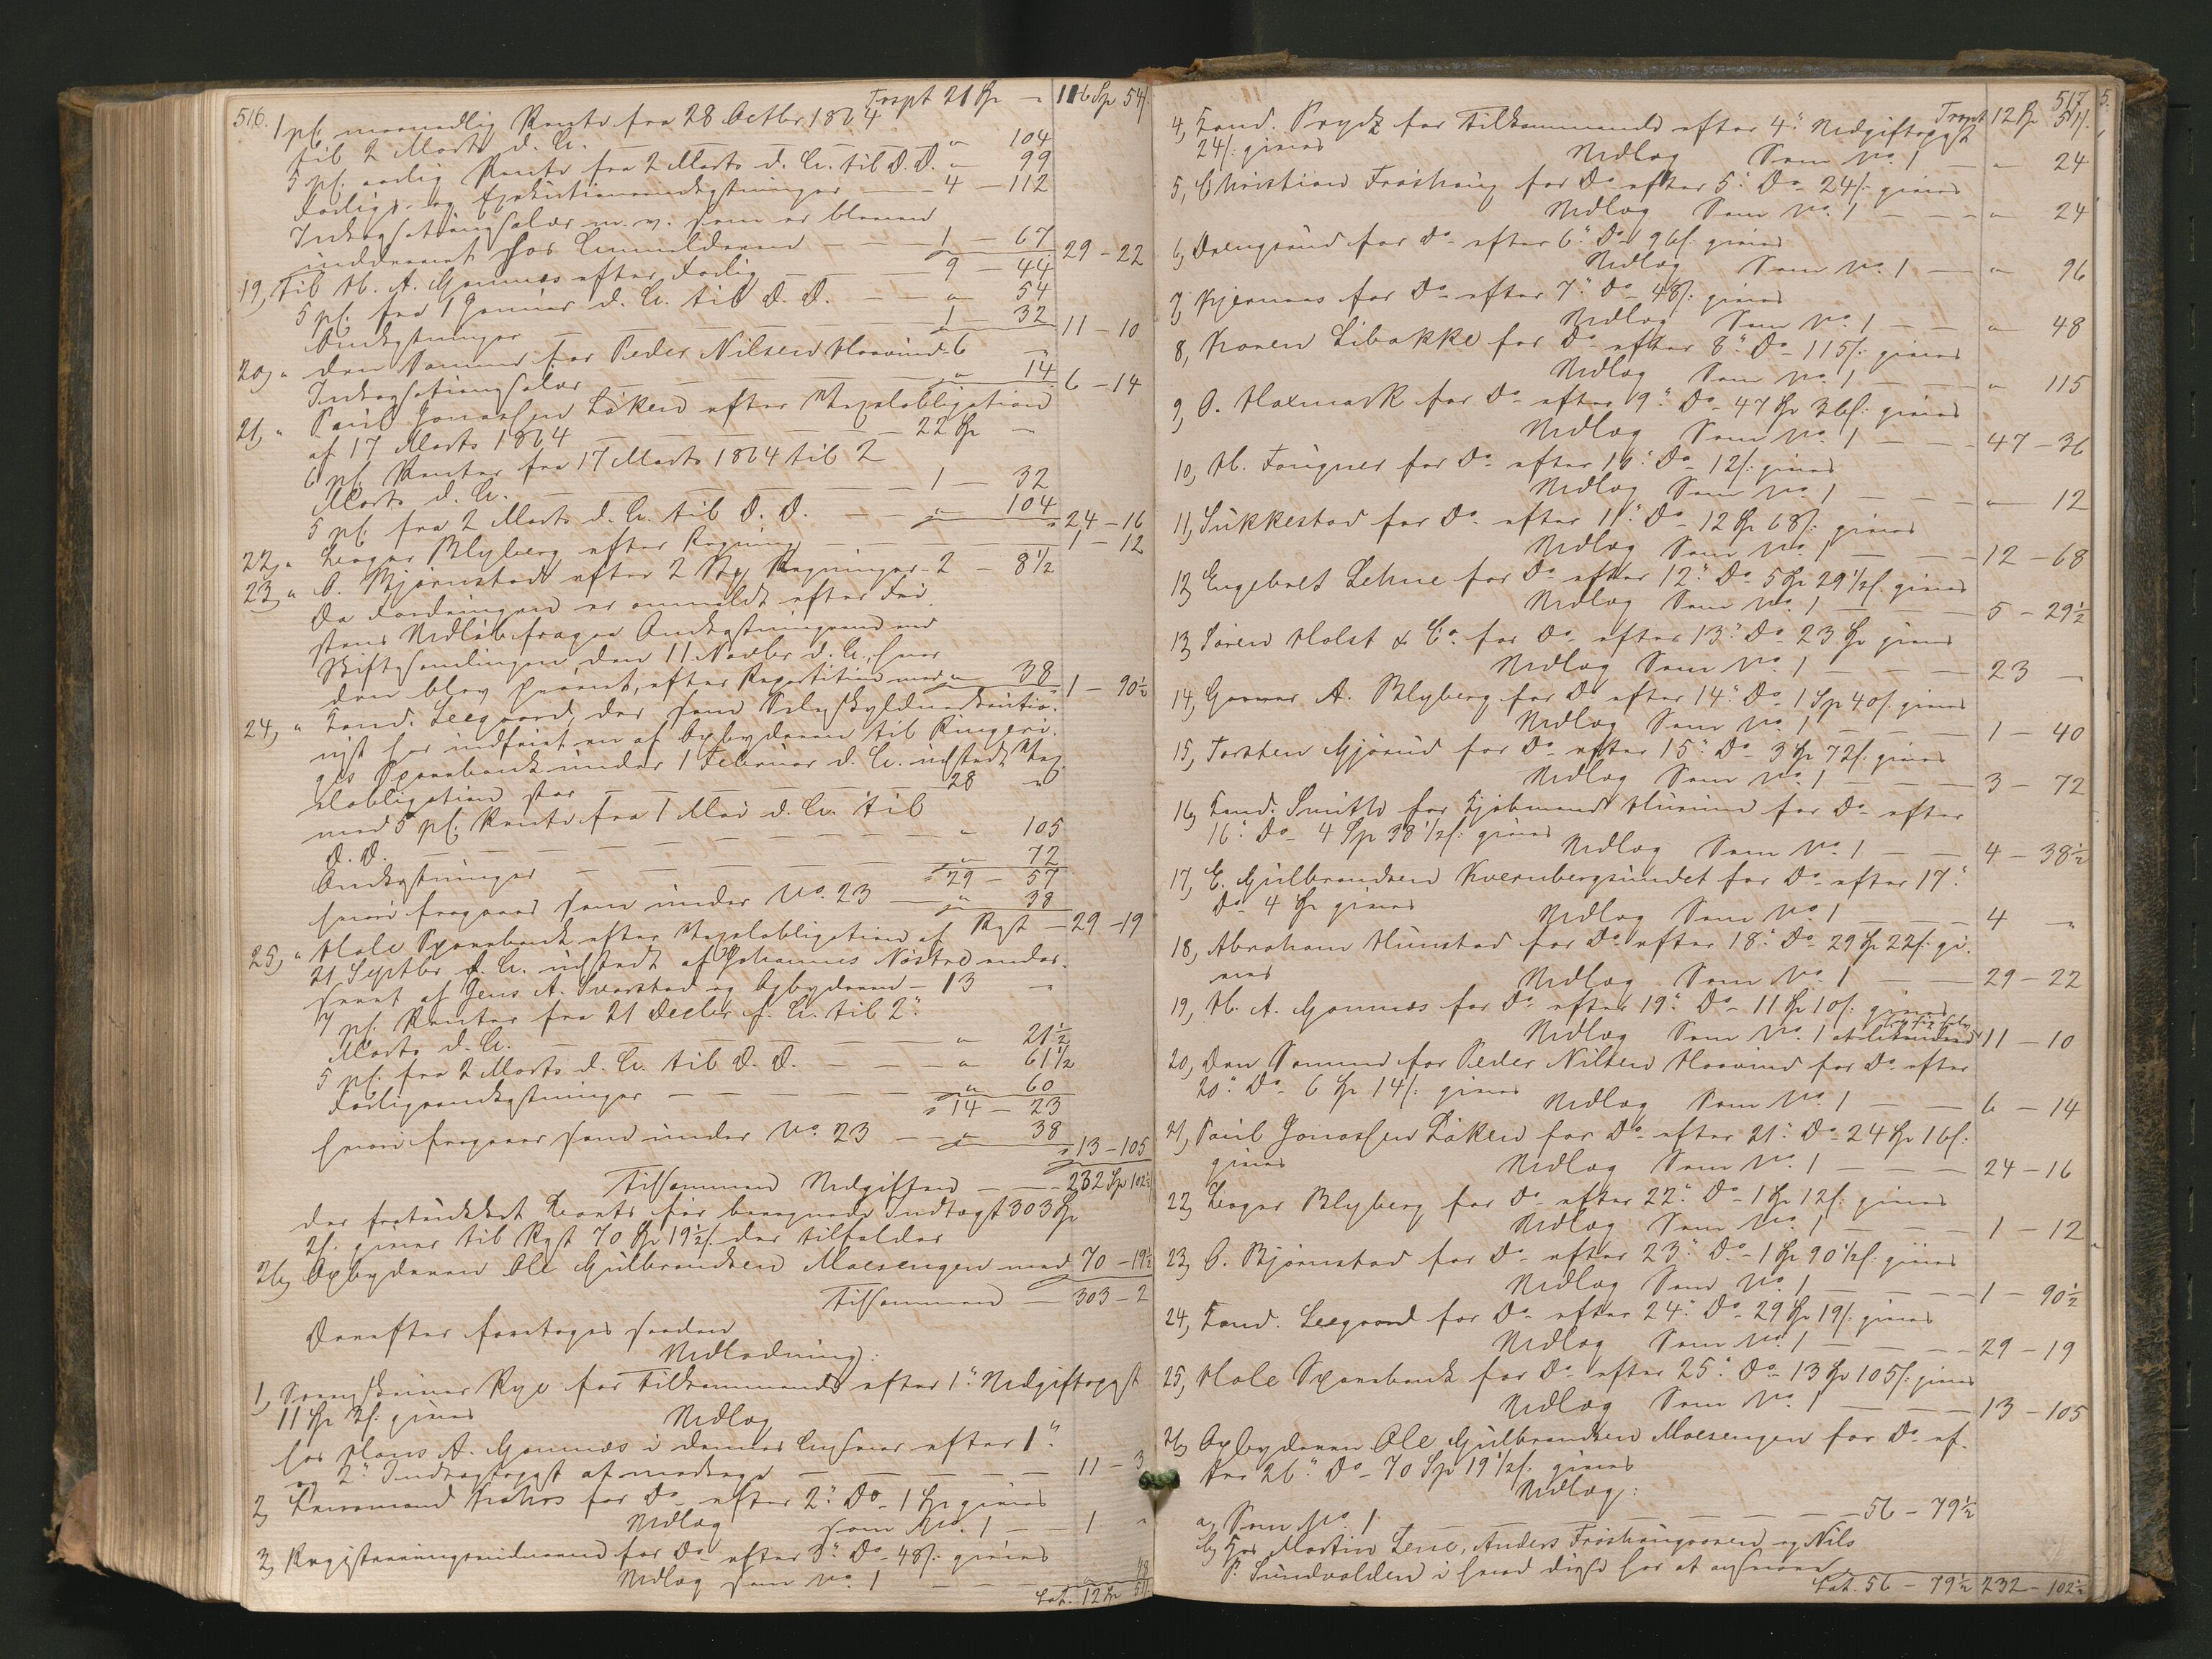 516.
Trspt 21 Sp „ 116 Sp 54/.
1 pC. maanedlig Rente fra 28 Octbr 1864
til 2 Marts d. A. — „ 104
5 pC. aarlig Rente fra 2 Marts d. A. til D.D. „ 99
Forligs- og Executionsomkostninger — 4 – 112
Inkassationssalær m.v. som er bleven
inddrevet hos Anmelderen — 1 – 67 29 – 22
19, Til H. A. Gomnæs efter Forlig — 9 – 44
5 pC. fra 1 Januar d. A. til D.D. — „ 54
Omkostninger — 1 – 32 11 – 10
20, „ den Samme for Peder Nilsen Haavind 6 „
Inkassationssalær — „ 14 6 – 14
21, „ Paul Jonassen Løken efter Vexelobligation
af 17 Marts 1864 — 22 Sp „
6 pC. Renter fra 17 Marts 1864 til 2
Marts d. A. — 1 – 32
5 pC. fra 2 Marts d. A. til D.D. — „ 104 24 – 16
22, „ Blyberg efter Regning — 1 – 12
23, „ O. Bjørnstad efter 2 Regninger 2 – 8½
Da Fordringen er anmeldt efter Fri-
stens Udløb fragaa Omkostningerne ved
Skiftesamlingen den 11 Novbr d. A., hvor
den blev prøvet, efter Repartition med „ 38 1 – 90½
24, „ Land. Leegaard, der som Selvskyldnerkautio-
nist har indfriet en af Opbyderen til Ringeri-
ges Sparebank under 1 Februar d. A. udstedt Vex-
elobligation stor — 28 „
med 5 pC. Rente fra 1 Mai d. A. til
D.D. — „ 105
Omkostninger — „ 72
29 – 57
hvori fragaaes som under No. 23 — „ 38
Rest — 29 – 19
25, „ Hole Sparebank efter Vexelobligation af
21 Septbr f. A. udstedt af Johannes Næstved endos-
seret af Jens A. Svarstad og Opbyderen – 13 „
7 pC. Renter fra 21 Decbr f. A. til 2.
Marts d. A. — „ 21½
5 pC. fra 2 Marts d. A. til D.D. — „ 61½
Forligsomkostninger — „ 60
14 – 23
hvori fragaaes som under No. 23 — „ 38 13 – 105
Tilsammen Udgiften — 232 Sp 102½
der fratrukket Boets før beregnede Indtægt 303 Sp
2/. giver til Rest 70 Sp 19½/. der tilfalder
26, Opbyderen Ole Gulbrandsen Moesengen med 70 – 19½
Tilsammen — 303 – 2
Derefter foretages saadan
Udlodning:
1, Sorenskriver Rye for Tilkommende efter 1.ste Udgiftspost
11 Sp 3/. gives Udlæg
hos Hans A. Gomnæs i dennes Ansvar efter 1.
og 2. Indtægtspost at modtage — 11 – 3
2, for Do. efter 2. Do. 1 Sp gives
Udlæg som No. 1 — 1 „
3, Registreringsvidnerne for Do. efter 3. Do. 48/. gives
Udlæg som No. 1 — „ 48
Lat. 12 Sp 51/.
517
Trspt 12 Sp 51/.
4, Land. Prydz for Tilkommende efter 4. Udgiftspost
24/. gives Udlæg Som No. 1 — „ 24
5, Christian Frøshaug for Do. efter 5. Do. 24/. gives
Udlæg Som No. 1 — „ 24
6, for Do. efter 6. Do. 96/. gives
Udlæg Som No. 1 — „ 96
7, Kjernaas for Do. efter 7. Do. 48/. gives
Udlæg Som No. 1 — „ 48
8, Karen Libakke for Do. efter 8. Do. 115/. gives
Udlæg Som No. 1 — „ 115
9, O. Haxmark for Do. efter 9. Do. 47 Sp 36/. gives
Udlæg Som No. 1 — 47 – 36
10, H. Fougner for Do. efter 10. Do. 12/. gives
Udlæg Som No. 1 — „ 12
11, Sukkestad for Do. efter 11. Do. 12 Sp 68/. gives
Udlæg Som No. 1 — 12 – 68
12, Engebret Lehne for Do. efter 12. Do. 5 Sp 29½/. gives
Udlæg Som No. 1 — 5 – 29½
13, Søren Holst & Co. for Do. efter 13. Do. 23 Sp gives
Udlæg Som No. 1 — 23 „
14, Garver A. Blyberg for Do. efter 14. Do. 1 Sp 40/. gives
Udlæg Som No. 1 — 1 – 40
15, Torsten Gjørud for Do. efter 15. Do. 3 Sp 72/. gives
Udlæg Som No. 1 — 3 – 72
16, Land. Smith for Kjøbmand Hurum for Do. efter
16. Do. 4 Sp 38½/. gives Udlæg Som No. 1 — 4 – 38½
17, E. Gulbrandsen Kvernbergsundet for Do. efter 17.
Do. 4 Sp gives Udlæg Som No. 1 — 4 „
18, Abraham Hunstad for Do. efter 18. Do. 29 Sp 22/. gi-
ves Udlæg Som No. 1 — 29 – 22
19, H. A. Gomnæs for Do. efter 19. Do. 11 Sp 10/. gives
Udlæg Som No. 1 11 – 10
20, Den Samme for Peder Nilsen Haavind for Do. efter
20. Do. 6 Sp 14/. gives Udlæg Som No. 1 — 6 – 14
21, Paul Jonassen Løken for Do. efter 21. Do. 24 Sp 16/.
gives Udlæg Som No. 1 — 24 – 16
22, Blyberg for Do. efter 22. Do. 1 Sp 12/. gives
Udlæg Som No. 1 — 1 – 12
23, O. Bjørnstad for Do. efter 23. Do. 1 Sp 90½/. gives
Udlæg Som No. 1 — 1 – 90½
24, Land. Leegaard for Do. efter 24. Do. 29 Sp 19/. gives
Udlæg Som No. 1 — 29 – 19
25, Hole Sparebank for Do. efter 25. Do. 13 Sp 105/. gives
Udlæg Som No. 1 — 13 – 105
26, Opbyderen Ole Gulbrandsen Moesengen for Do. ef-
ter 26. Do. 70 Sp 19½/. gives
Udlæg:
a, Som No. 1 — 56 – 79½
b, Hos Martin Lene, Anders Frøshaugøren og Nils
P. Sundvolden i hvad disse har at ansvare
Lat. 56 – 79½ 232 – 102½